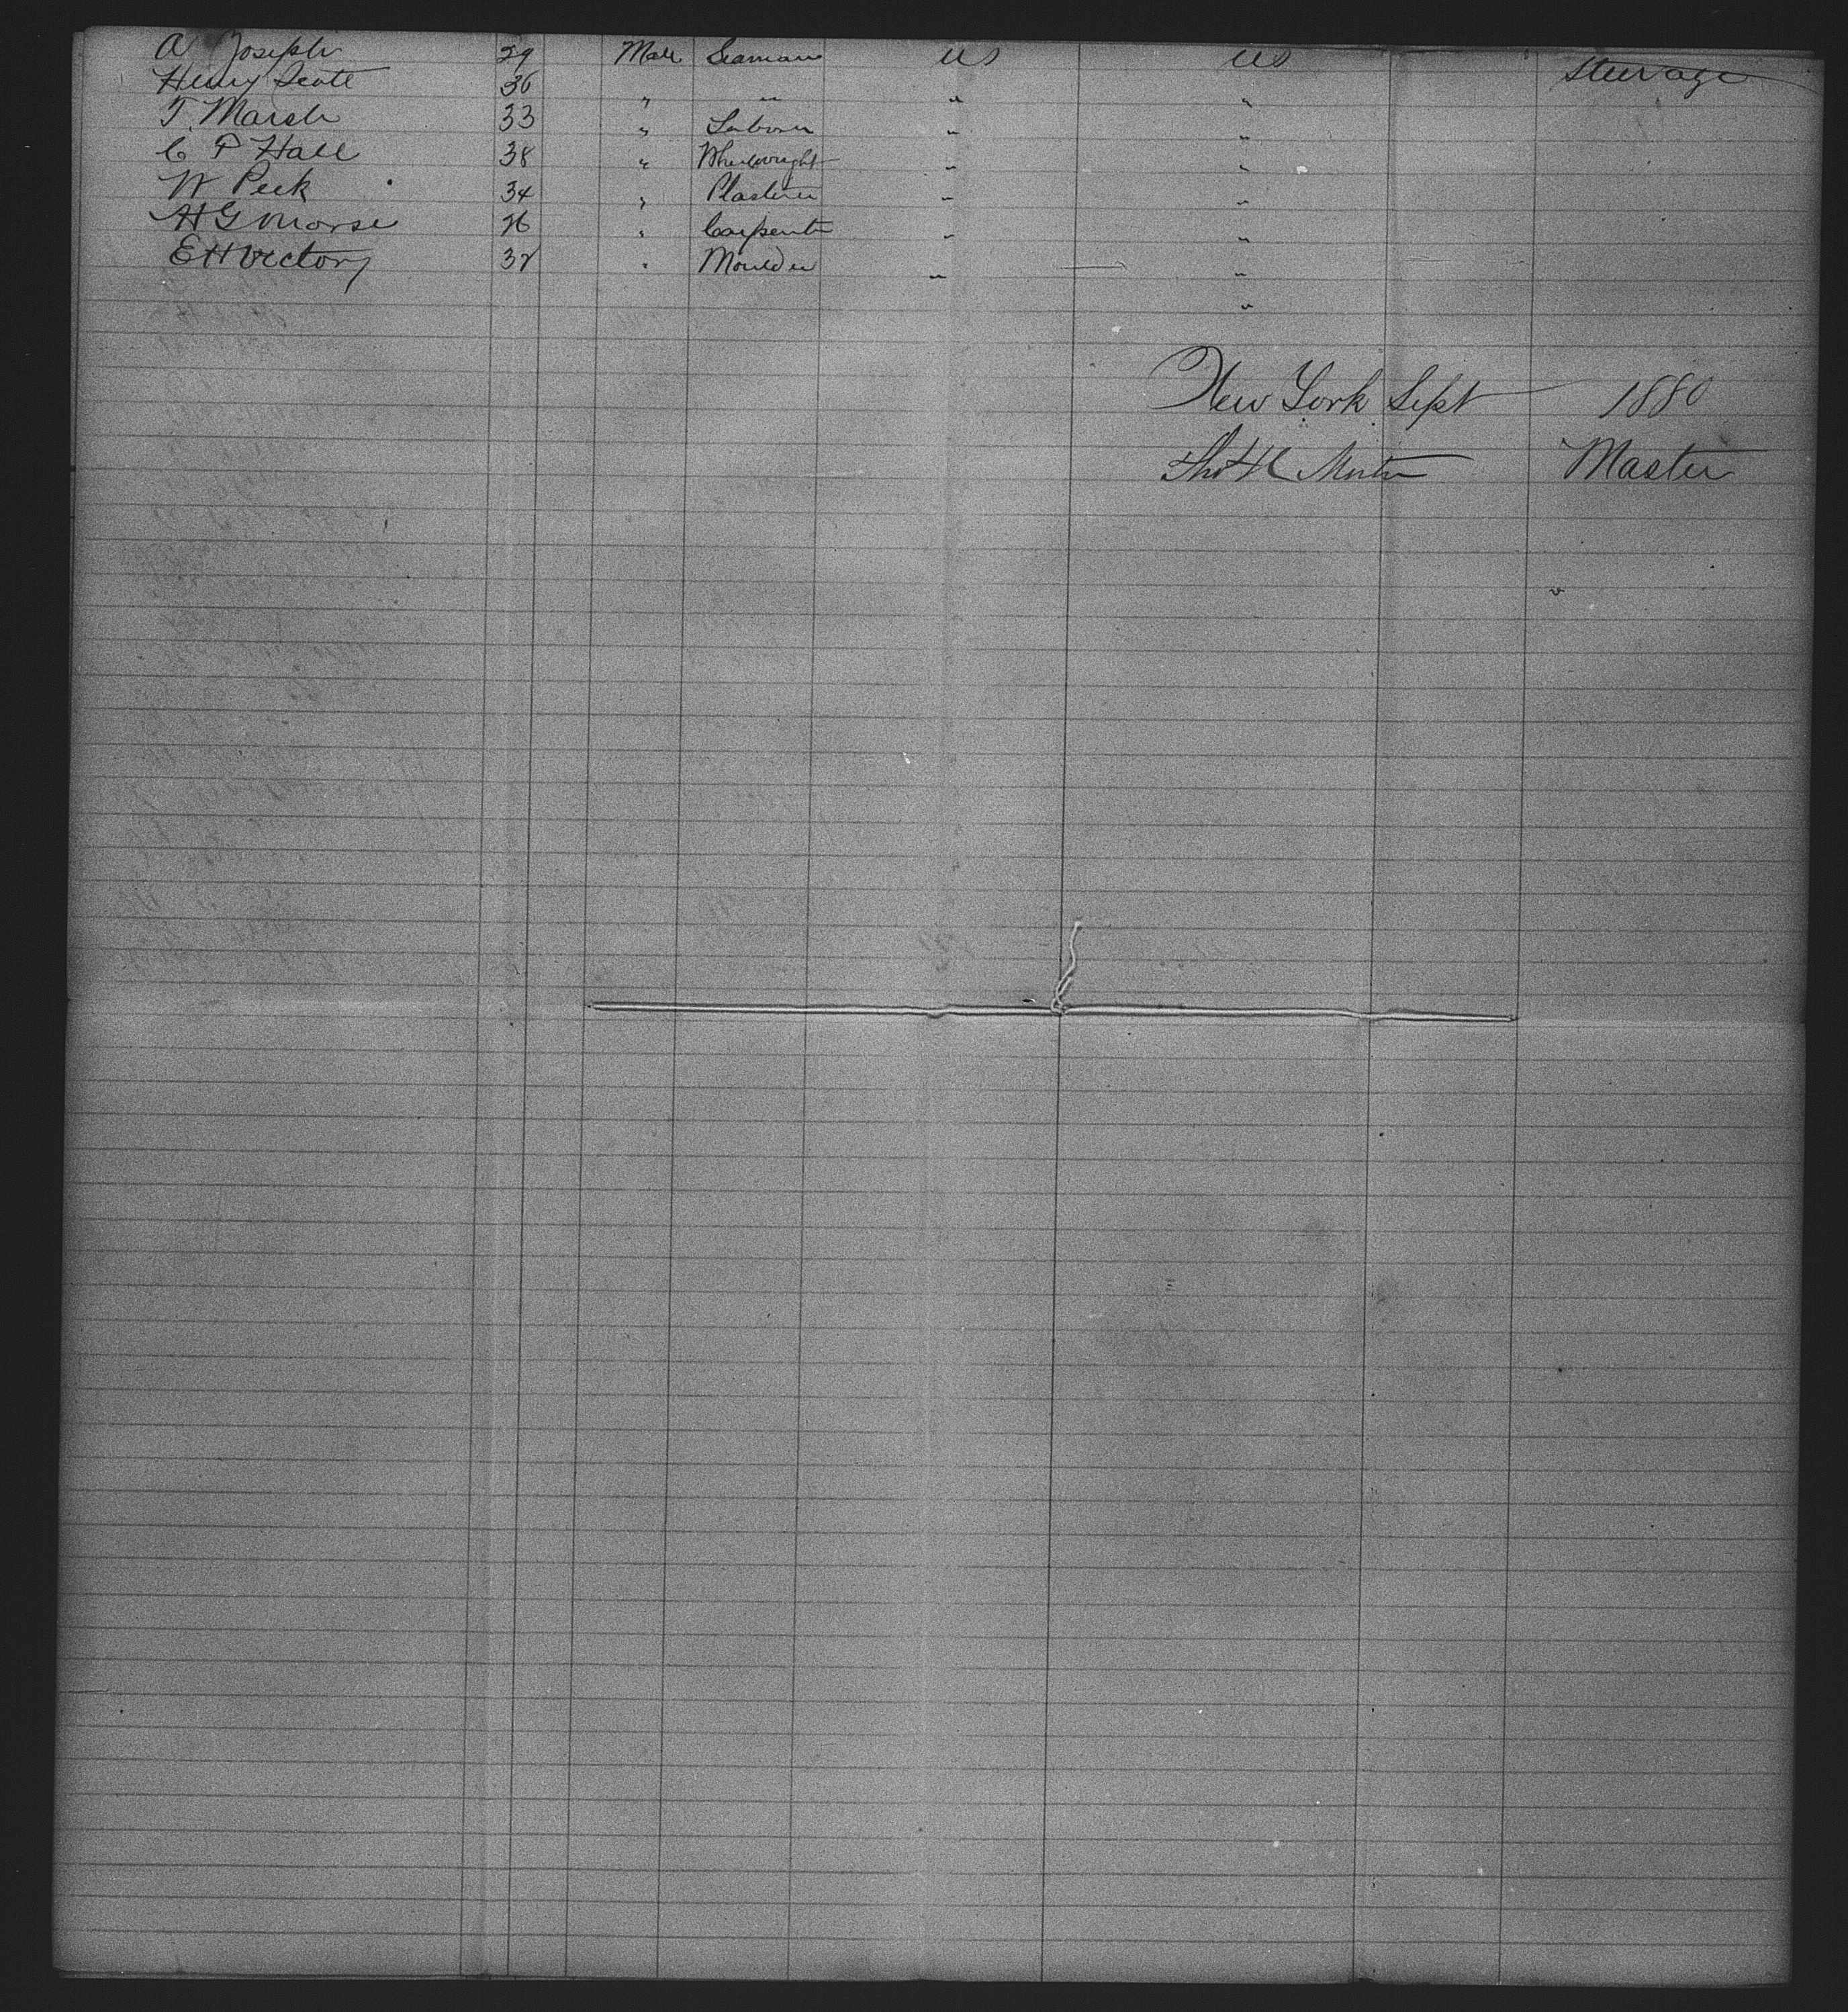 A Joseph 29 Male Seaman US US Steerage
Henry Scott 36 " " " "
T. Marsh 33 " Laborer " "
C P Hall 38 " Wheelwright " "
W Peck 34 " Plasterer " "
H G Morse 26 " Carpenter " "
E H Victory 32 " Moulder " "
"
New York Sept 1880
Master